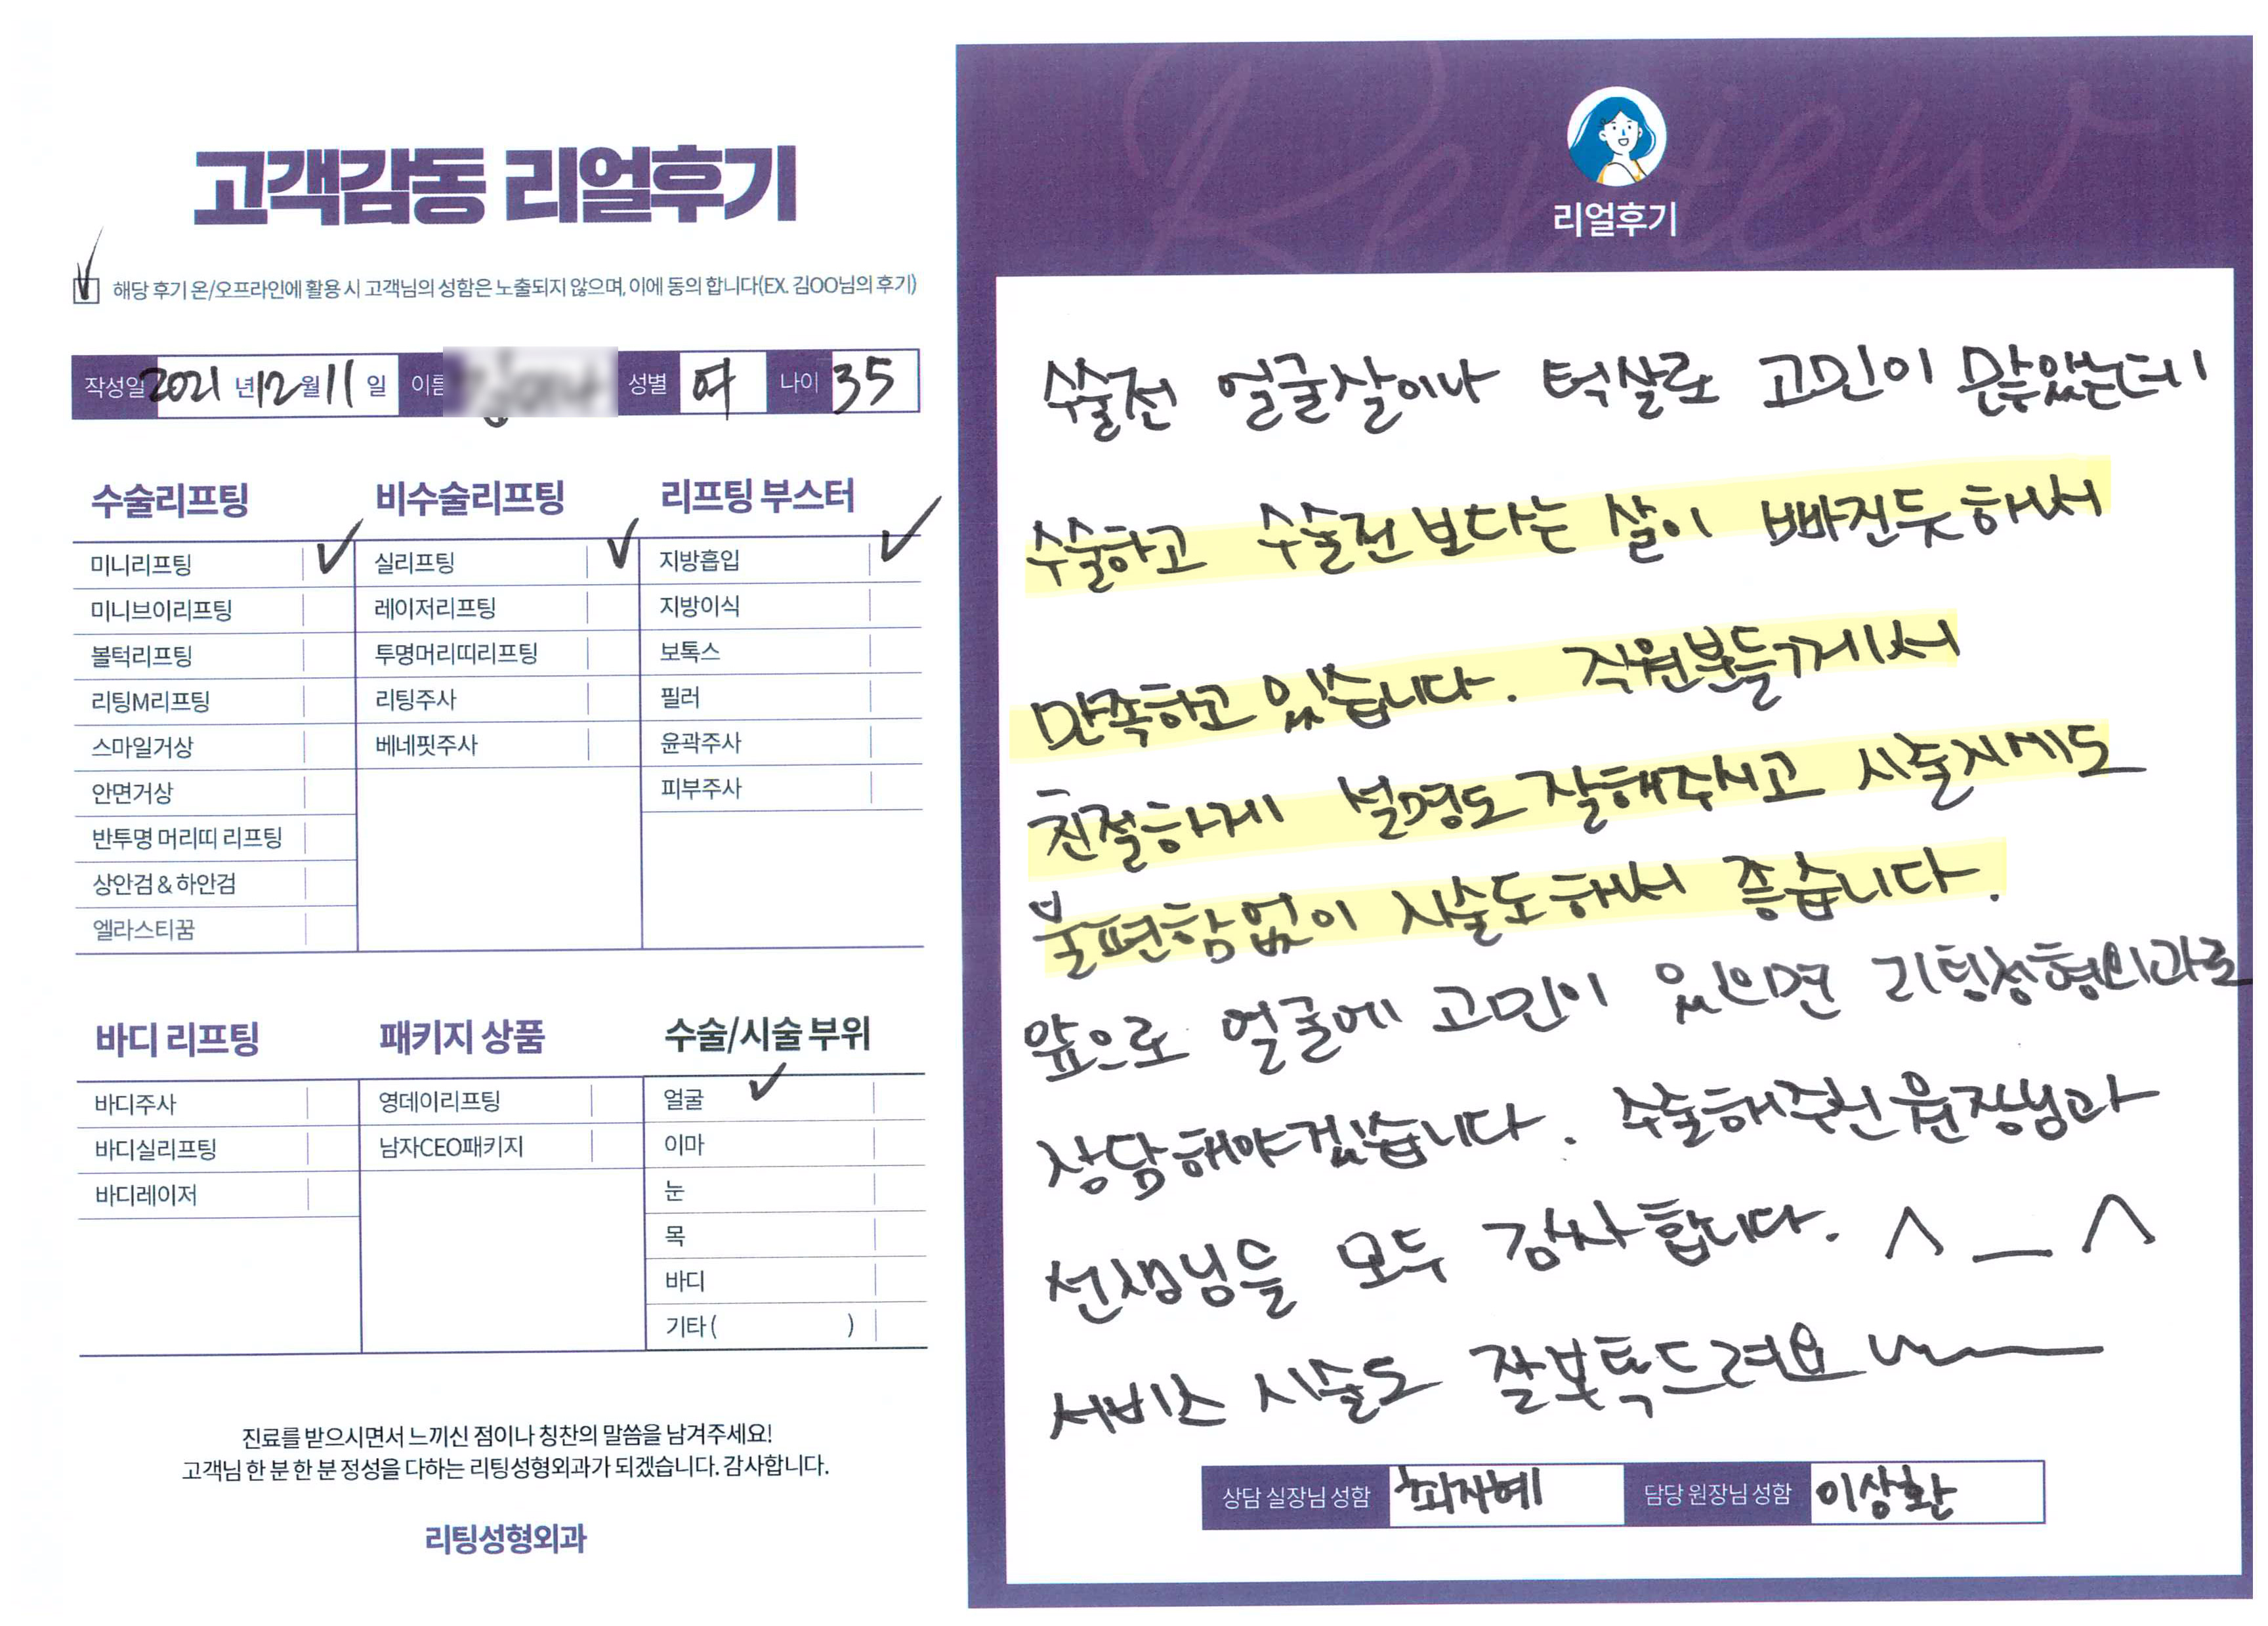 고객감동 리얼후기
해당 후기 온/오프라인에 활용 시 고객님의 성함은 노출되지 않으며, 이에 동의 합니다(EX. 김OO님의 후기)
작성일 2021 년 12 월 11 일 이름 성별 여 나이 35
수술리프팅 비수술리프팅 리프팅 부스터
미니리프팅 실리프팅 지방흡입
미니브이리프팅 레이저리프팅 지방이식
볼턱리프팅 투명머리띠리프팅 보톡스
리팅M리프팅 리팅주사 필러
스마일거상 베네핏주사 윤곽주사
안면거상 피부주사
반투명 머리띠 리프팅
상안검 & 하안검
엘라스티꿈
바디 리프팅 패키지 상품 수술/시술 부위
바디주사 영데이리프팅 얼굴
바디실리프팅 남자CEO패키지 이마
바디레이저 눈
목
바디
기타 ( )
진료를 받으시면서 느끼신 점이나 칭찬의 말씀을 남겨주세요!
고객님 한 분 한 분 정성을 다하는 리팅성형외과가 되겠습니다. 감사합니다.
리팅성형외과
Review
리얼후기
수술전 얼굴살이나 턱살로 고민이 많았는데
수술하고 수술전 보다는 살이 빠진듯 해서
만족하고 있습니다. 직원분들께서
친절하게 설명도 잘해주시고 시술시에도
불편함없이 시술도 해서 좋습니다.
앞으로 얼굴에 고민이 있으면 리팅성형외과로
상담해야겠습니다. 수술해주신 원장님과
선생님들 모두 감사합니다. ^_^
서비스 시술도 잘부탁드려요~
상담 실장님 성함 최자혜 담당 원장님 성함 이상환